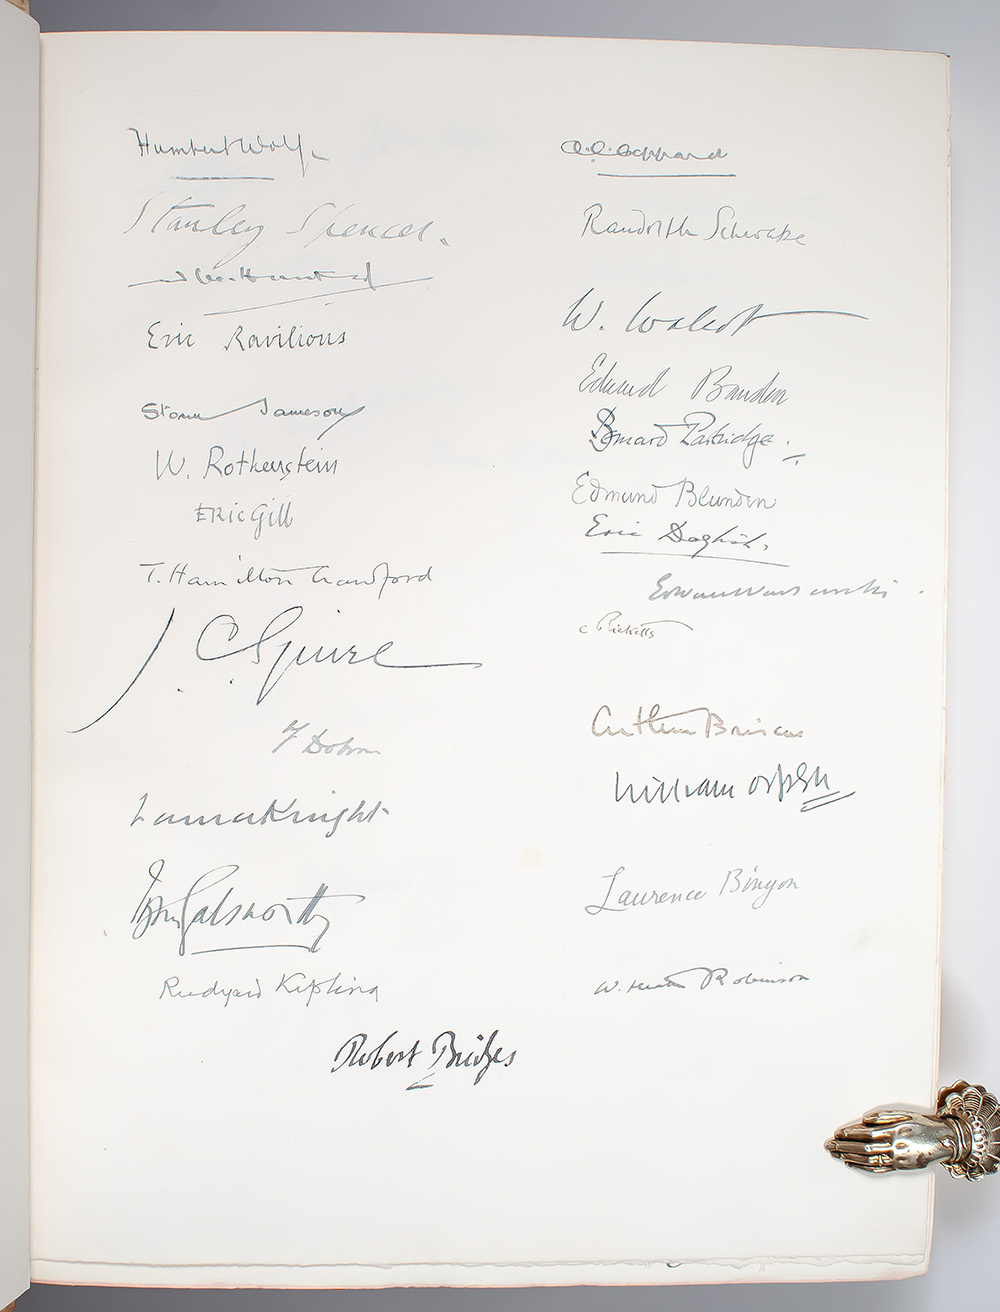 Humbert Wolfe
Stanley Spencer.
Eric Ravilious
Storm Jameson
W. Rothenstein
Eric Gill
T. Hamilton Crawford
J. C. Squire
F Dobson
Laura Knight
John Galsworthy
Rudyard Kipling
A. E. Coppard
Randolph Schwabe
W. Walcot
Edward Bawden
Bernard Partridge.
Edmund Blunden
Eric Daglish.
C Ricketts
Arthur Briscoe
William Orpen
Laurence Binyon
W. Heath Robinson
Robert Bridges